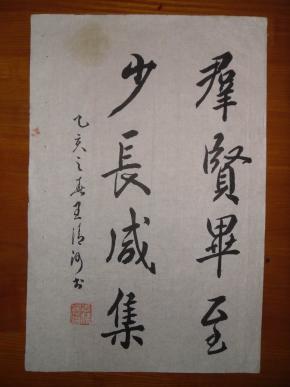 羣賢畢至
少長咸集
乙亥之春王清河书